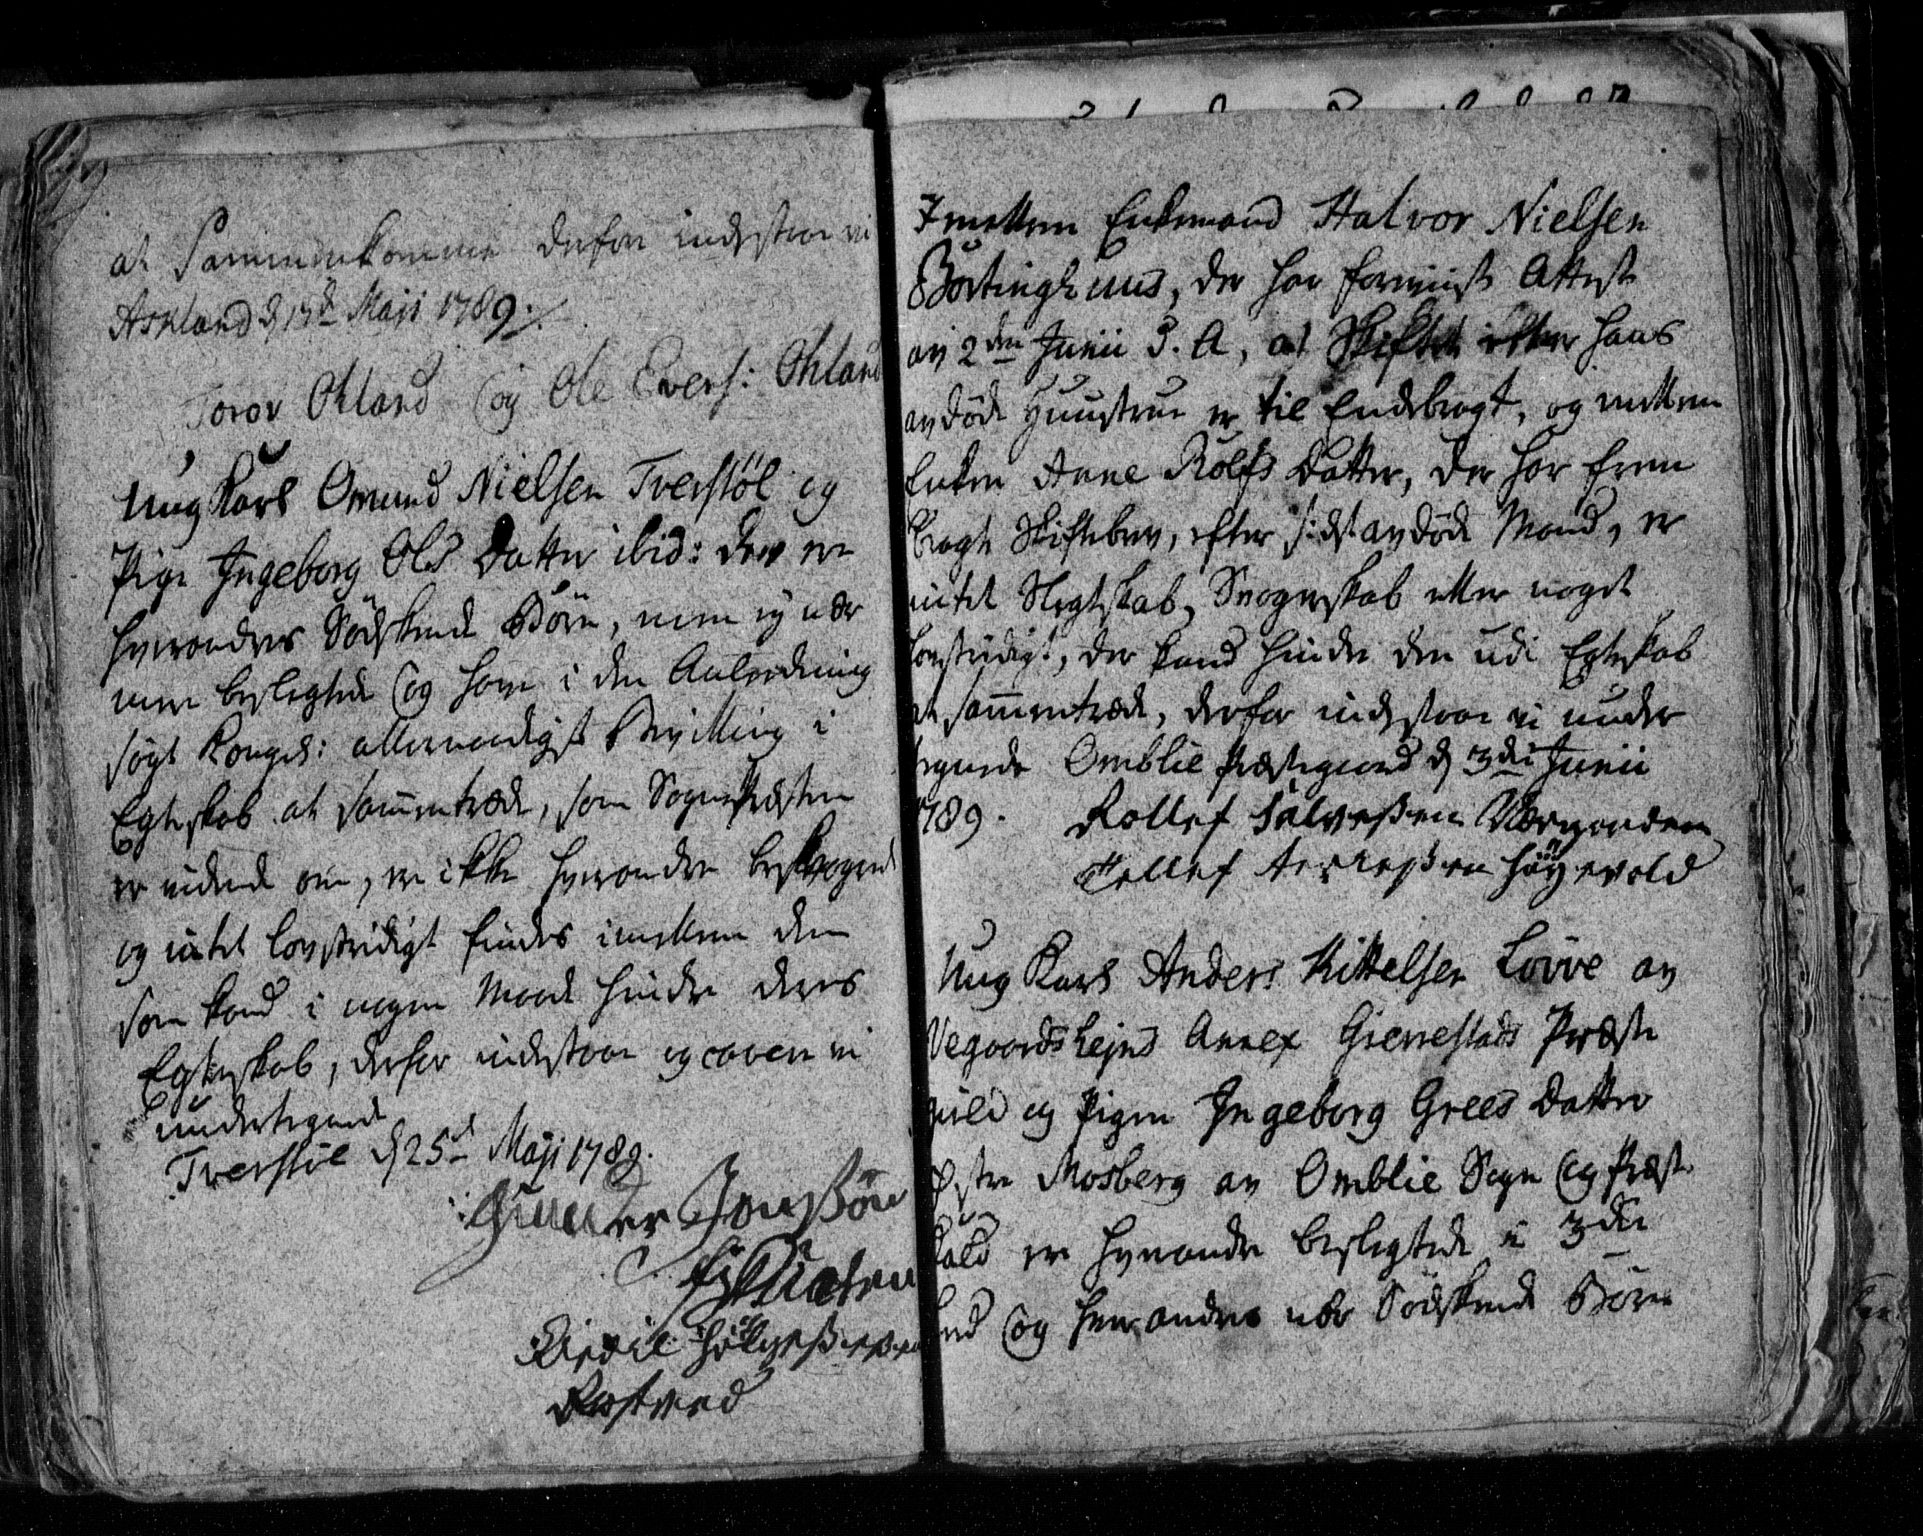 at Sammenkomme derfor indestaar vi
Askland d 13d Maji 1789
Torov Okland og Ole Evers: Okland
Ung Karl Omund Nielsen Tverstöl og
Pige Ingeborg Ols Datter ibid: der ere
hverandres Södskende Börn, men ej nær
mere beslegtede og have i den Anledning
sögt Kongel: allernaadigst Bevilling i
Egteskab at sammentræde, som Sognepræsten
er vidende om, er ikke hverandre besvogrede
og intet lovstridigt findes imellem dem
som kand i nogen Maade hindre deres
Egteskab, derfor indestaar og cavere vi
undertegnede
Tverstöl d 25d Maji 1789.
Gunder Jensön
Rostved
Imellem Enkemand Halvor Nielsen
Bortinghuus, der har forevist Attest
av 2den Junii S. A, at Skiftet efter hans
avdöde Huustrue er til Endebragt, og mellem
Enken Anne Rolfs Datter, der har frem
bragt Skiftebrev, efter sidst avdöde Mand, er
intet Slegtskab, Svogerskab eller noget
lovstridigt, der kand hindre dem udi Egteskab
at sammentræde, derfor indestaar vi under
tegnede Omblie Præstegaard d 3die Junii
1789. Rollef Salveßen
Tellef Høgevold
Ung Karl Anders Kittelsen Lövve av
Vegaardshejns Annex Gierrestads Præste
gield og Pigen Ingeborg Grees Datter
Östre Mosberg av Omblie Sogn og Præste
kald ere hverandre beslegtede i 3die
Leed og hverandres Södskende Börn